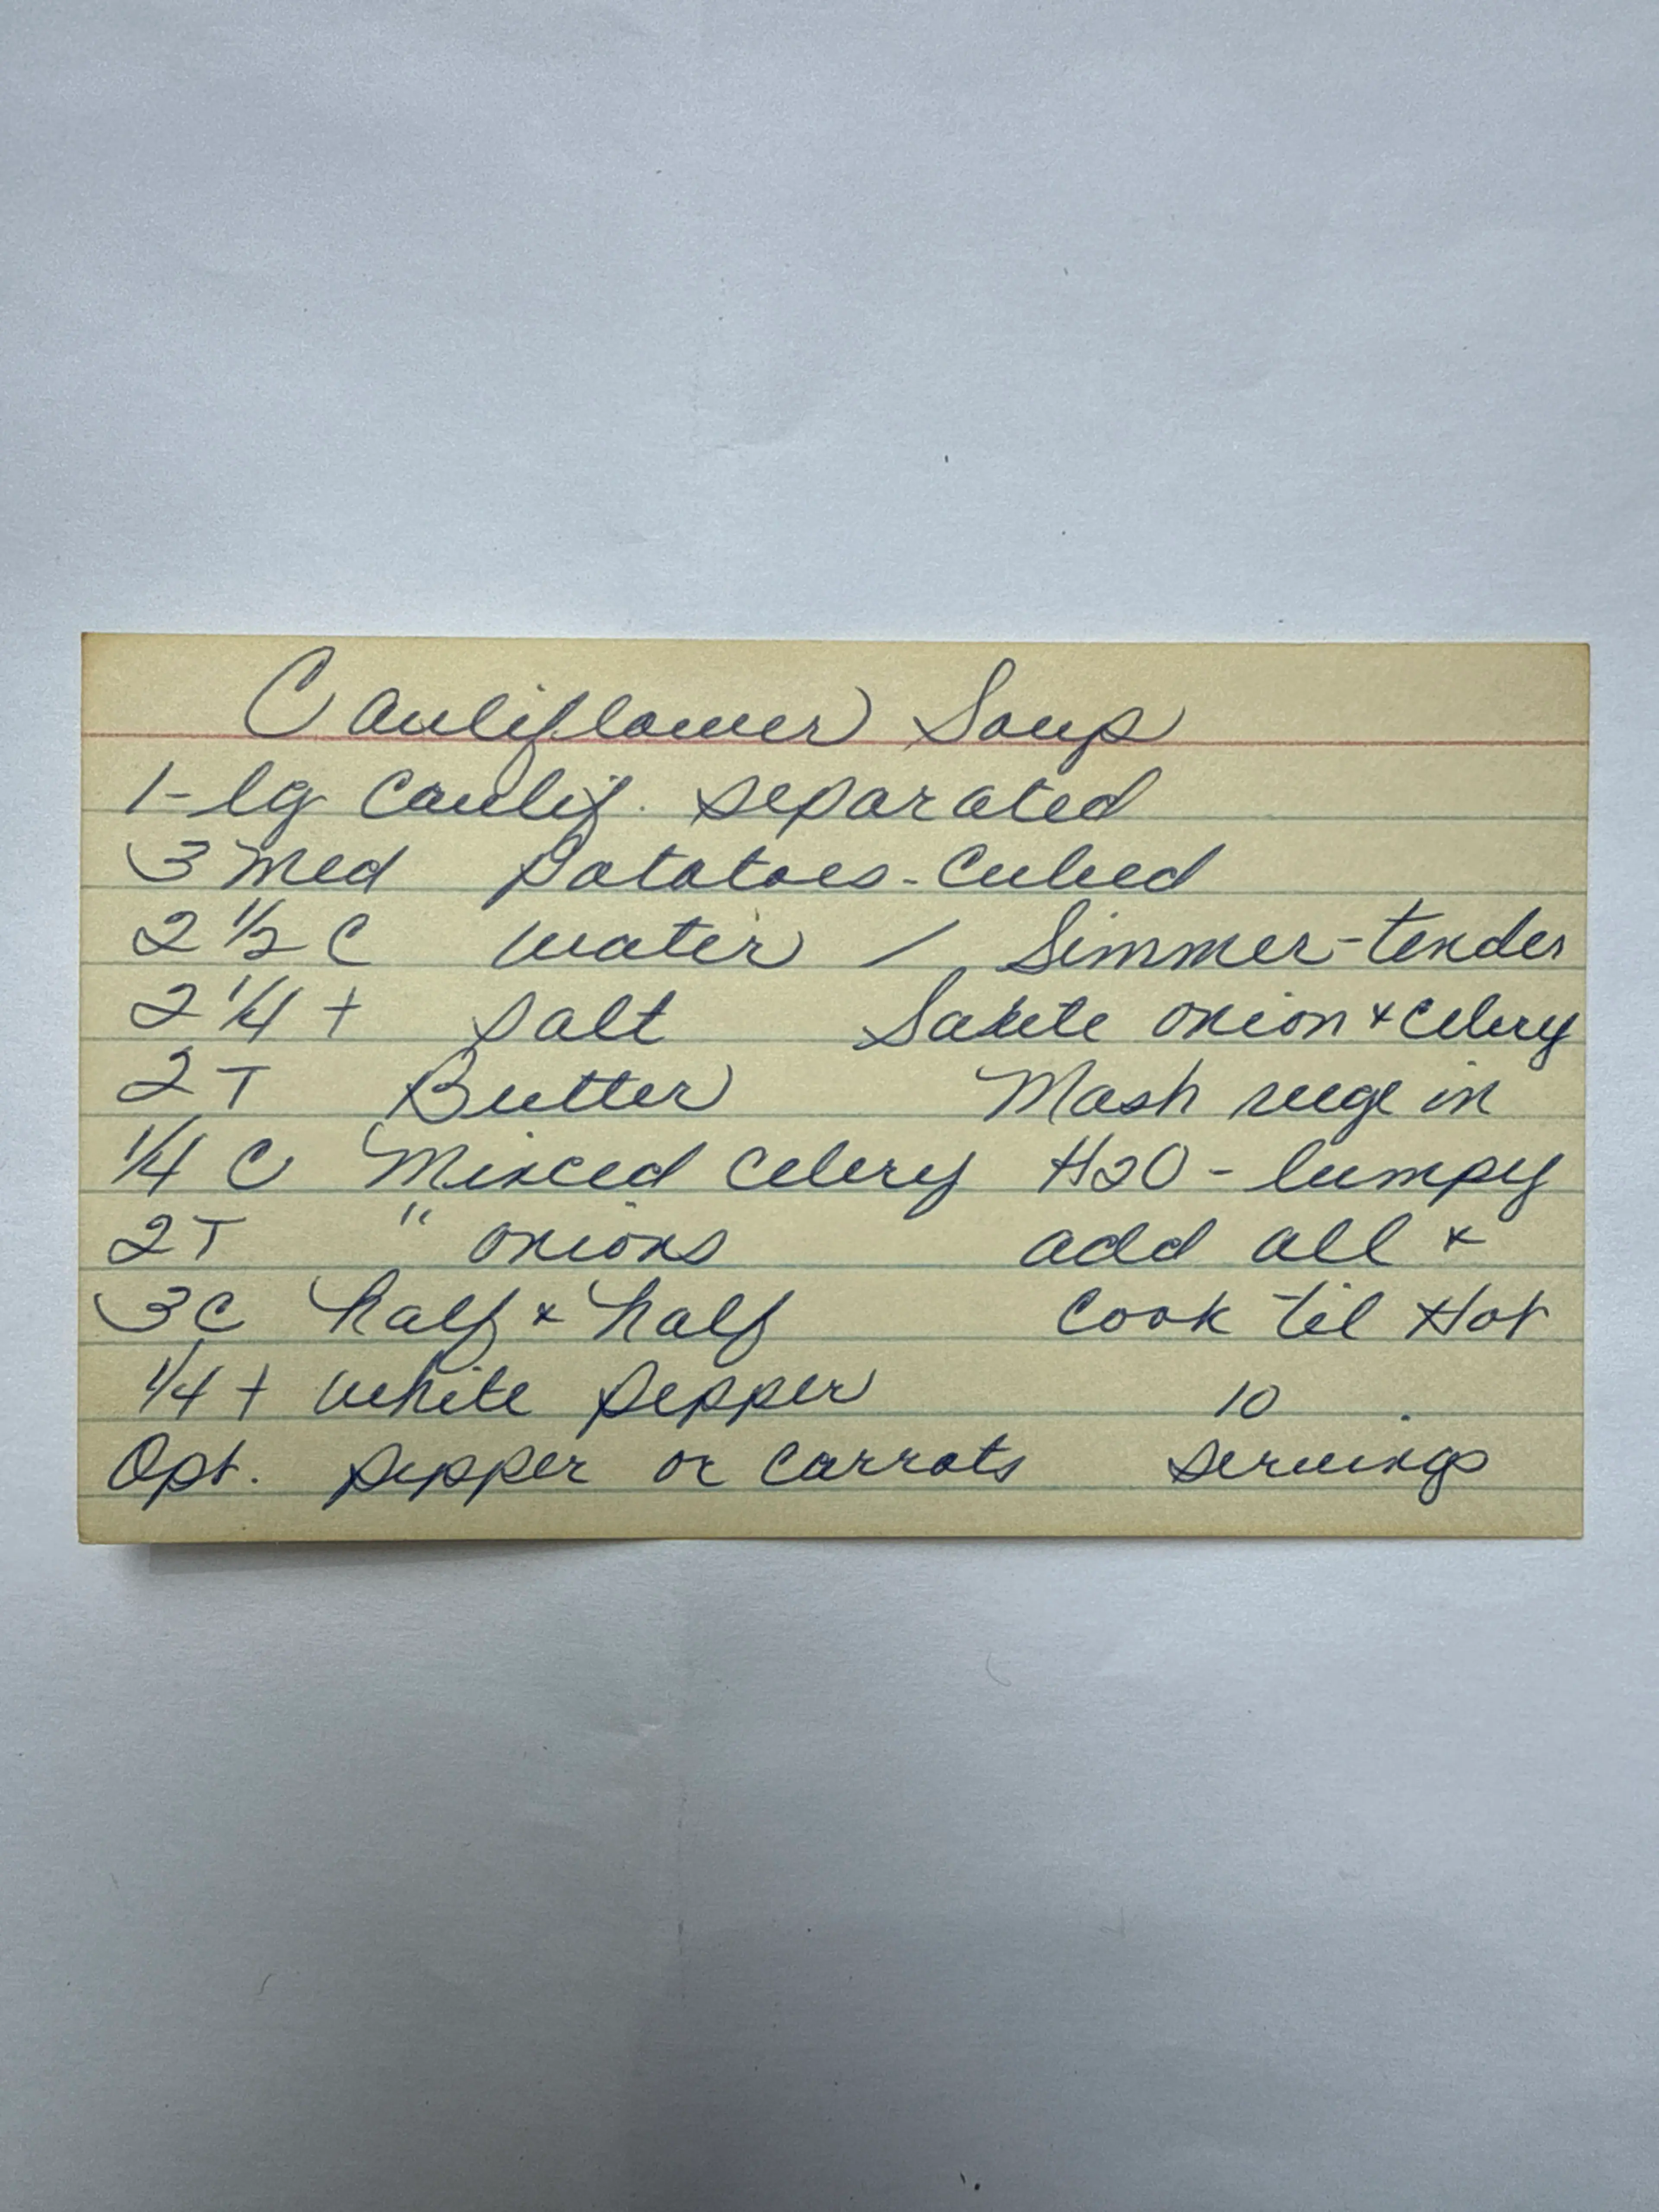 Cauliflower Soup
1 - lg Caulif. separated
3 med potatoes - Cubed
2 1/2 C water / Simmer - tender
2 1/4 t salt Saute onion & celery
2 T Butter Mash vege in
1/4 C Minced Celery H2O - lumpy
2 T " onions add all &
3 C half & half Cook til Hot
1/4 t white pepper 10
Opt. pepper or carrots servings